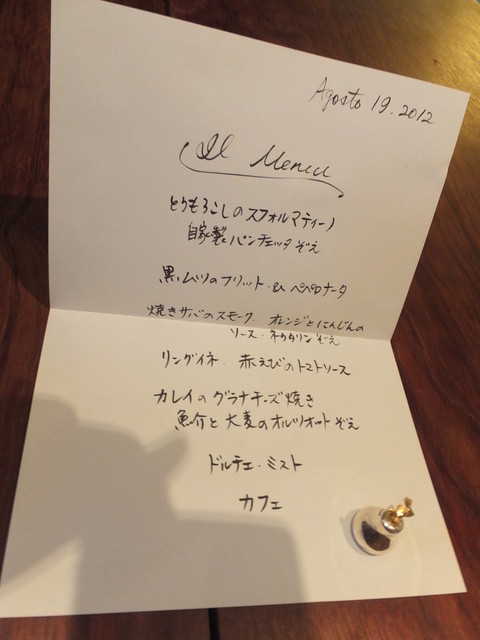 Agosto 19. 2012
Il Menu
とうもろこしのスフォルマティーノ
自家製パンチェッタぞえ
黒ムツのフリット・& ペペロナータ
焼きサバのスモーク. オレンジとにんじんの
ソース・ネクタリンぞえ
リングイネ. 赤えびのトマトソース
カレイのグラナチーズ焼き
魚介と大麦のオルゾットぞえ
ドルチェ・ミスト
カフェ